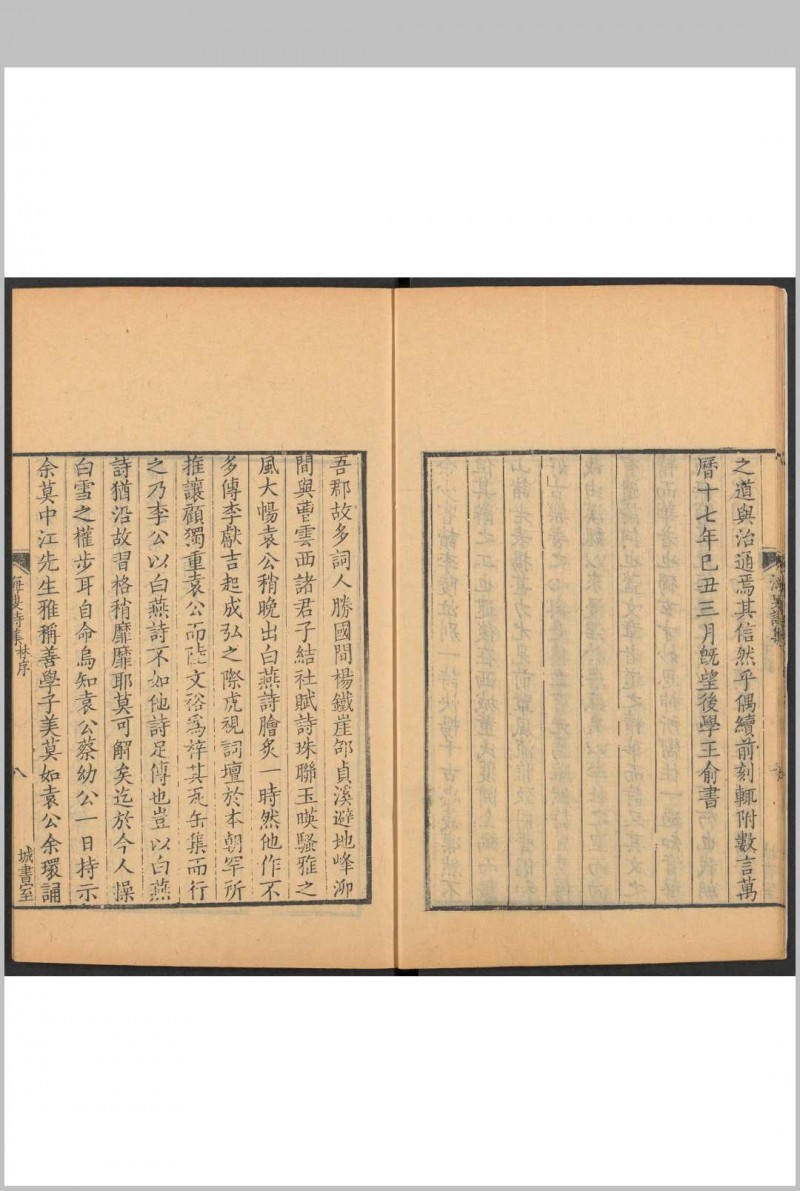 之道與治通焉其信然乎偶續前刻輒附數言萬
曆十七年已丑三月旣望後學王俞書
吾郡故多詞人勝國間楊鐵崖邵貞溪避地峰泖
間與曹雲西諸君子結社賦詩珠聯玉暎騷雅之
風大暢袁公稍晚出白燕詩膾炙一時然他作不
多傳李獻吉起成弘之際虎視詞壇於本朝罕所
推讓顧獨重袁公而陸文裕爲梓其瓦缶集而行
之乃李公以白燕詩不如他詩足傳也豈以白燕
詩猶沿故習格稍靡靡耶莫可解矣迄於今人操
白雪之權步耳自命烏知袁公蔡幼公一日持示
余莫中江先生雅稱善學子美莫如袁公余環誦
海叟詩集 林序
八
城書室